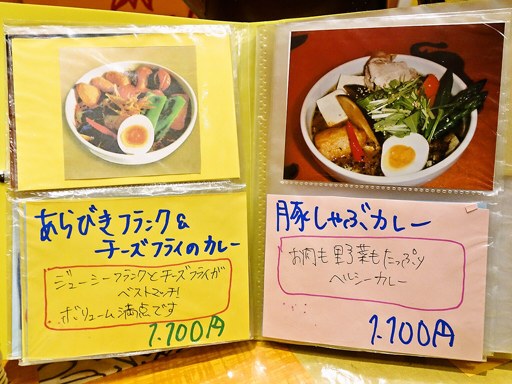 あらびきフランク&
チーズフライのカレー
ジューシーフランクとチーズフライが
ベストマッチ!
ボリューム満点です
1.100円
豚しゃぶカレー
お肉も野菜もたっぷり
ヘルシーカレー
1.100円